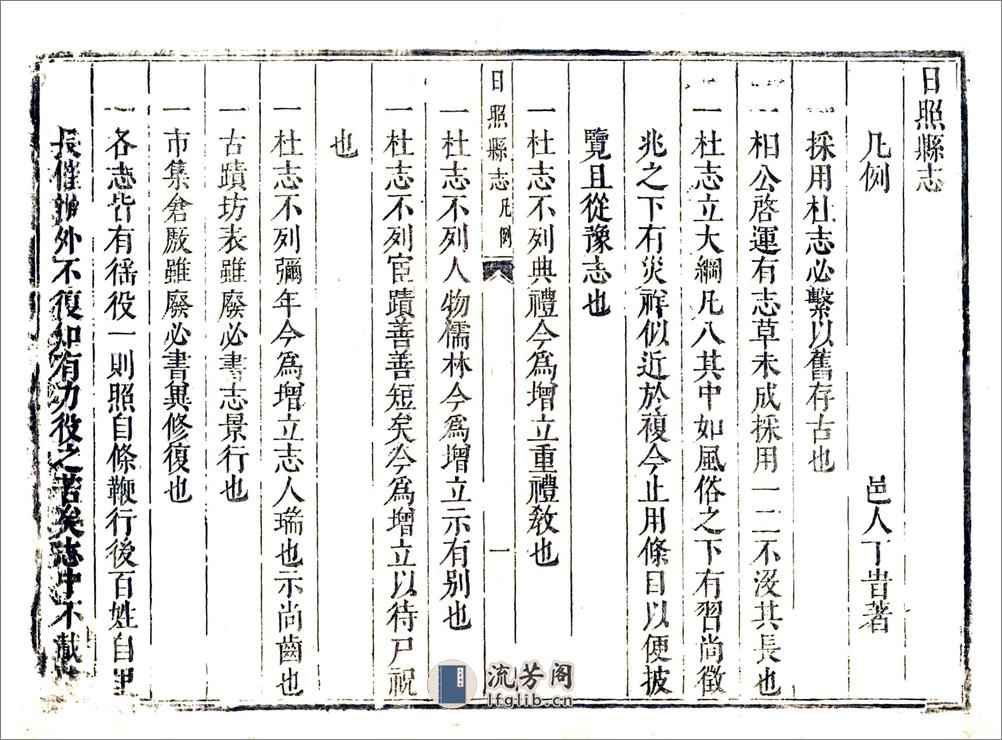 日照縣志
凡例　邑人丁旹著
一採用杜志必繫以舊存古也
一相公啓運有志草未成採用一二不沒其長也
一杜志立大綱凡八其中如風俗之下有習尚徵
兆之下有災祥似近於複今止用條目以便披
覽且從豫志也
一杜志不列典禮今爲增立重禮敎也
日照縣志 凡例 一
一杜志不列人物儒林今爲增立示有別也
一杜志不列宦蹟善善短矣今爲增立以待尸祝
也
一杜志不列彌年今爲增立志人瑞也示尚齒也
一古蹟坊表雖廢必書志景行也
一市集倉厫雖廢必書兾修復也
一各志皆有徭役一則照自條鞭行後百姓自里
長催辦外不復知有力役之苦矣志中不載
流芳阁
lfglib.cn